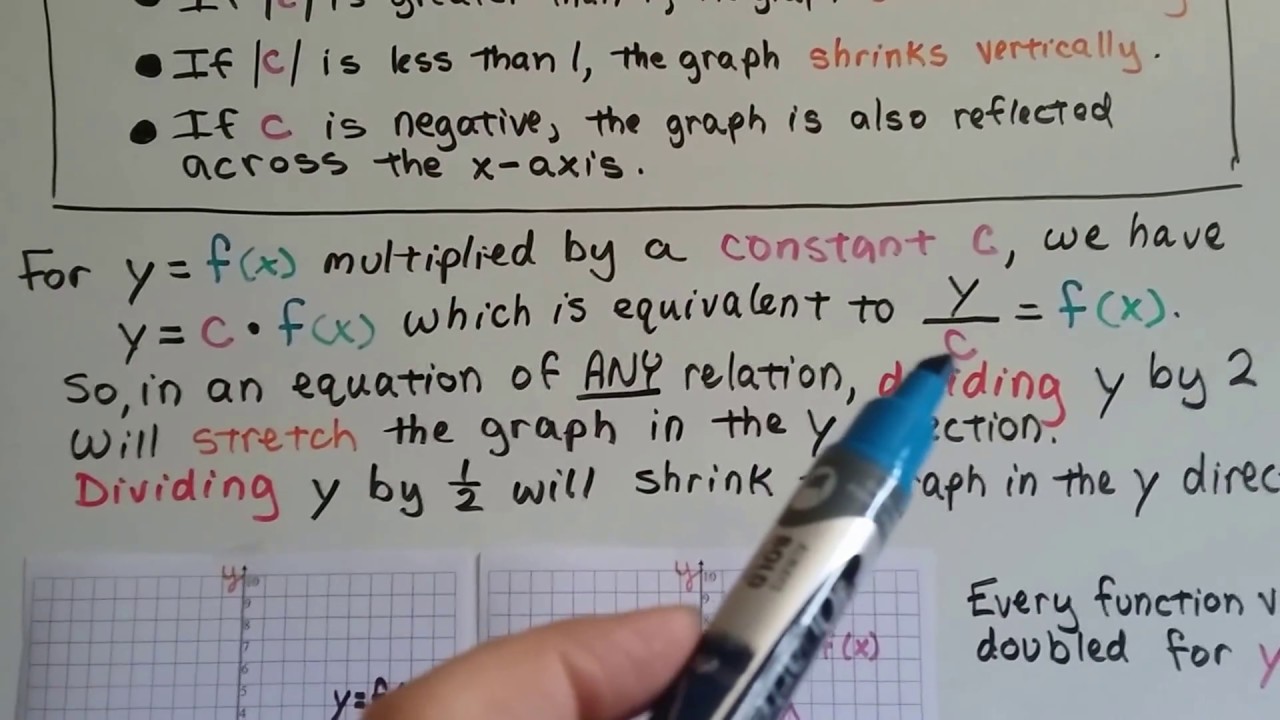 If |c| is greater than 1, the graph
• If |c| is less than 1, the graph shrinks vertically.
• If c is negative, the graph is also reflected
across the x-axis.
For y = f(x) multiplied by a constant c, we have
y = c • f(x) which is equivalent to y/c = f(x).
So, in an equation of ANY relation, dividing y by 2
will stretch the graph in the y
Dividing y by 1/2 will shrink in the y
y 10 9 8 7 6 5 4
y 10 9
y=
(x)
Every function
doubled for y
BOLD